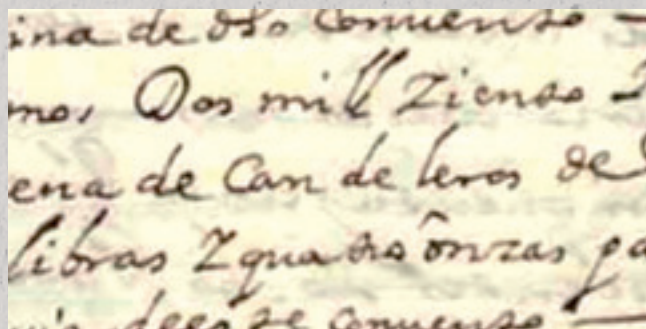 ina de dho Convento
mos Dos mill Ziento
ena de Can de leros de
libras Zquatro ônzas pa
deeste convento